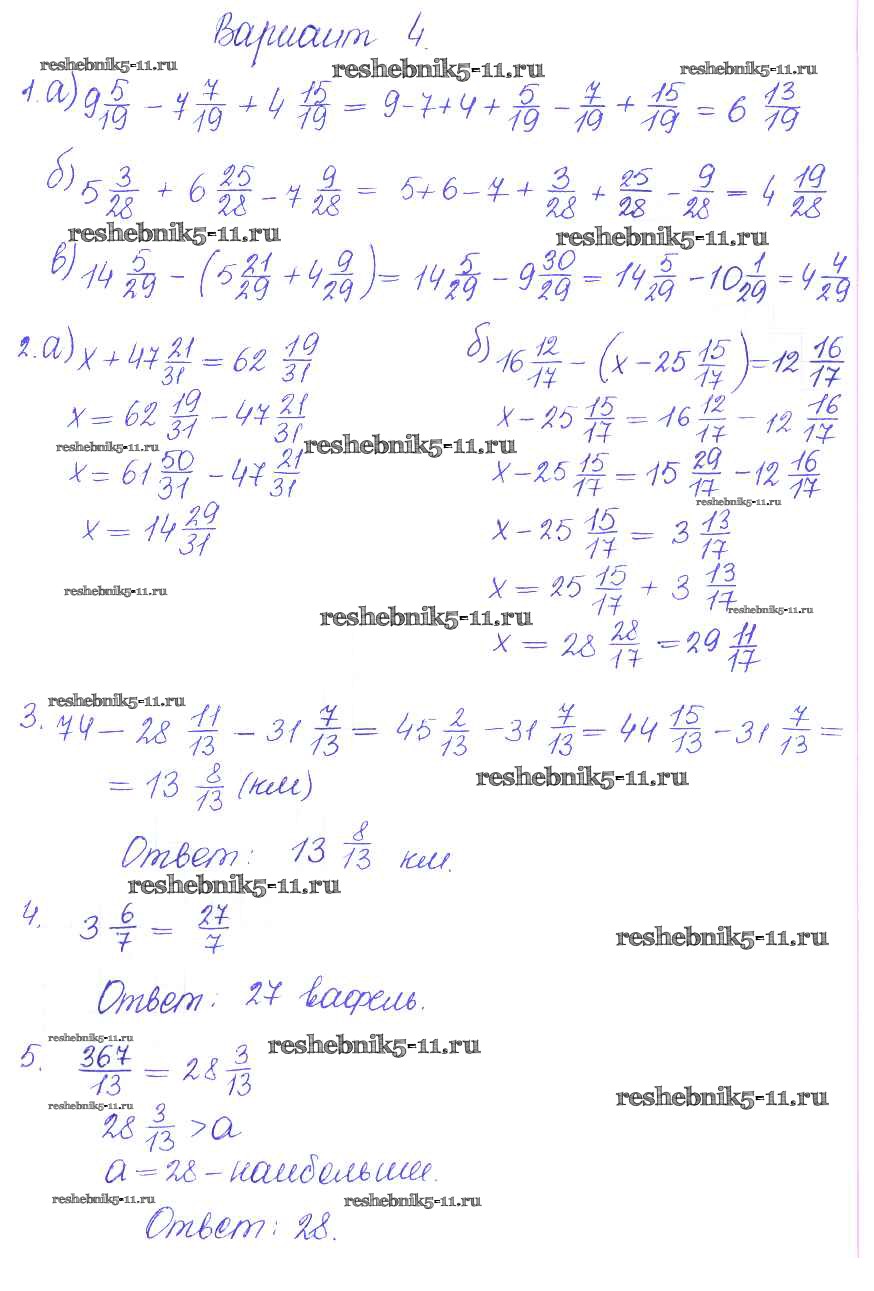 Вариант 4.
reshebnik5-11.ru reshebnik5-11.ru reshebnik5-11.ru
1. а) 9 5/19 − 7 7/19 + 4 15/19 = 9-7+4 + 5/19 − 7/19 + 15/19 = 6 13/19
б) 5 3/28 + 6 25/28 − 7 9/28 = 5+6−7 + 3/28 + 25/28 − 9/28 = 4 19/28
reshebnik5-11.ru reshebnik5-11.ru
в) 14 5/29 − (5 21/29 + 4 9/29) = 14 5/29 − 9 30/29 = 14 5/29 − 10 1/29 = 4 4/29
2. а) x + 47 21/31 = 62 19/31
x = 62 19/31 − 47 21/31
reshebnik5-11.ru reshebnik5-11.ru
x = 61 50/31 − 47 21/31
x = 14 29/31
reshebnik5-11.ru
б) 16 12/17 − (x − 25 15/17) = 12 16/17
x − 25 15/17 = 16 12/17 − 12 16/17
x − 25 15/17 = 15 29/17 − 12 16/17
reshebnik5-11.ru
x − 25 15/17 = 3 13/17
x = 25 15/17 + 3 13/17
reshebnik5-11.ru reshebnik5-11.ru
x = 28 28/17 = 29 11/17
reshebnik5-11.ru
3. 74 − 28 11/13 − 31 7/13 = 45 2/13 − 31 7/13 = 44 15/13 − 31 7/13 =
reshebnik5-11.ru
= 13 8/13 (км)
Ответ: 13 8/13 км.
reshebnik5-11.ru
4. 3 6/7 = 27/7
reshebnik5-11.ru
Ответ: 27 вафель.
reshebnik5-11.ru reshebnik5-11.ru
5. 367/13 = 28 3/13
reshebnik5-11.ru reshebnik5-11.ru
28 3/13 > а
а = 28 − наибольшее.
reshebnik5-11.ru reshebnik5-11.ru
Ответ: 28.